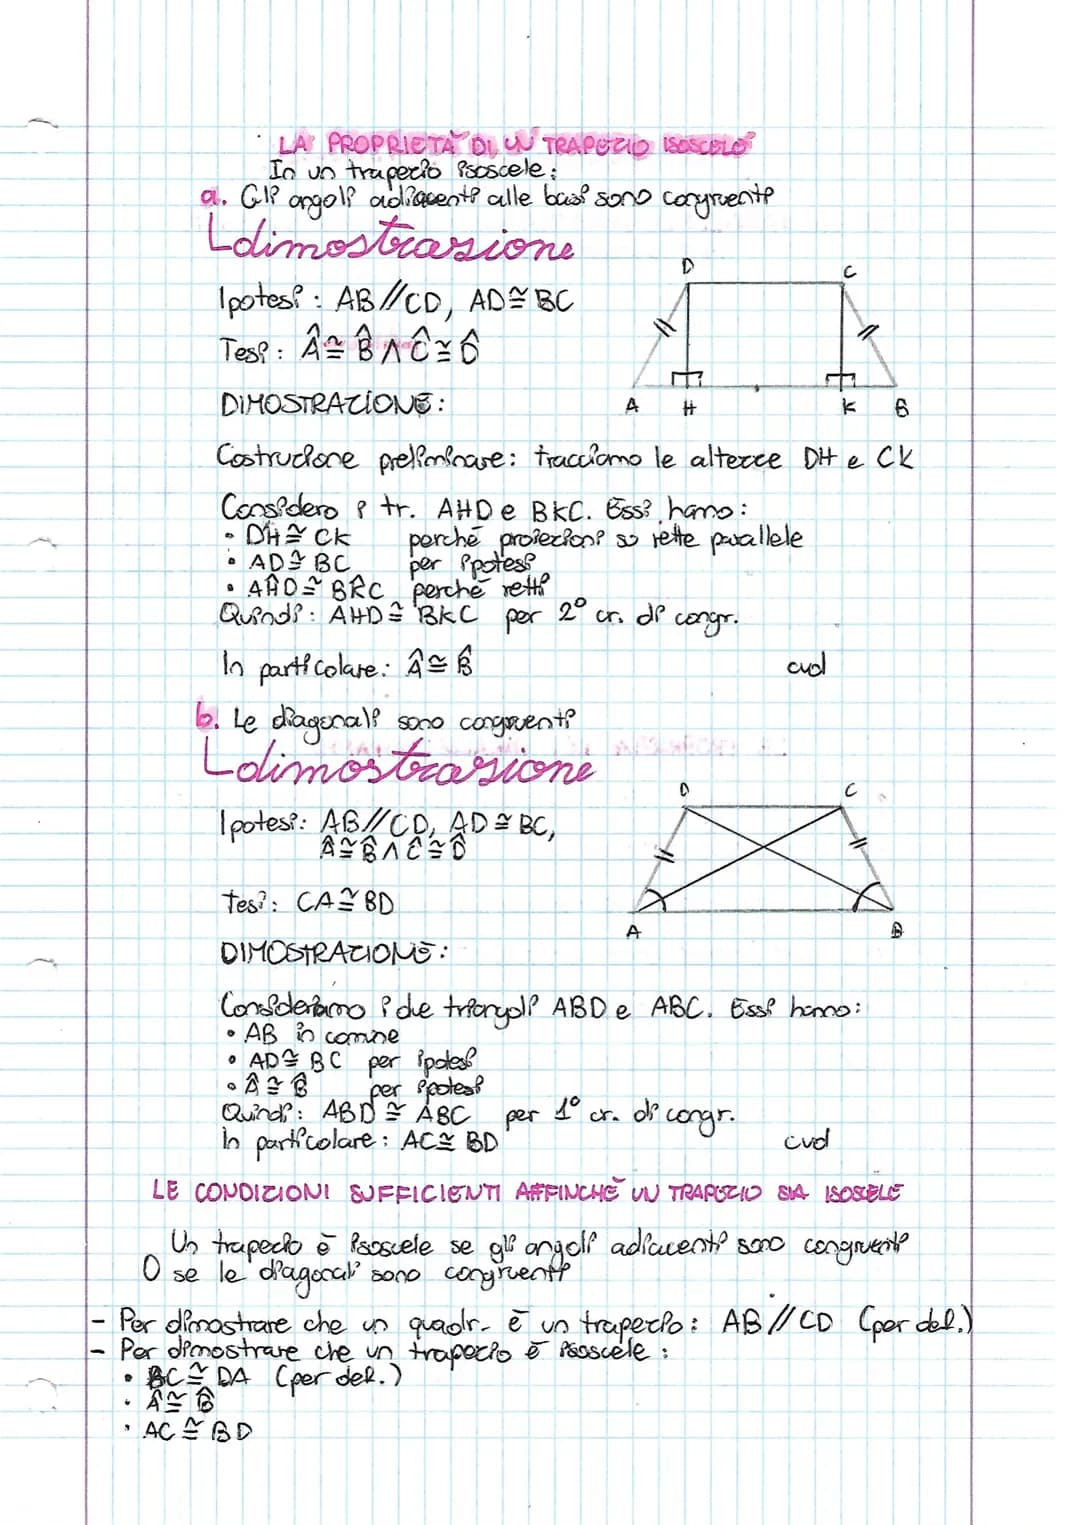 LA PROPRIETÀ DI UN TRAPEZIO ISOSCELO
In un trapezio isoscele:
a. Gli angoli adiacenti alle basi sono congruenti
dimostrazione
Ipotesi: AB//CD, AD≅BC
Tesi: Â≅B̂ ∧ Ĉ≅D̂
DIMOSTRAZIONE:
D C
A H K B
Costruzione preliminare: tracciamo le altezze DH e CK
Considero i tr. AHD e BKC. Essi hanno:
• DH≅CK perché proiezioni su rette parallele
• AD≅BC per ipotesi
• AĤD≅BK̂C perché retti
Quindi: AHD≅BKC per 2° cr. di congr.
In particolare: Â≅B̂ cvd
b. Le diagonali sono congruenti
dimostrazione
Ipotesi: AB//CD, AD≅BC,
Â≅B̂ ∧ Ĉ≅D̂
Tesi: CA≅BD
DIMOSTRAZIONE:
D C
A B
Consideriamo i due triangoli ABD e ABC. Essi hanno:
• AB in comune
• AD≅BC per ipotesi
• Â≅B̂ per ipotesi
Quindi: ABD≅ABC per 1° cr. di congr.
In particolare: AC≅BD cvd
LE CONDIZIONI SUFFICIENTI AFFINCHÉ UN TRAPEZIO SIA ISOSCELE
Un trapezio è isoscele se gli angoli adiacenti sono congruenti
O se le diagonali sono congruenti
- Per dimostrare che un quadr. è un trapezio: AB//CD (per def.)
- Per dimostrare che un trapezio è isoscele:
• BC≅DA (per def.)
• Â≅B̂
• AC≅BD